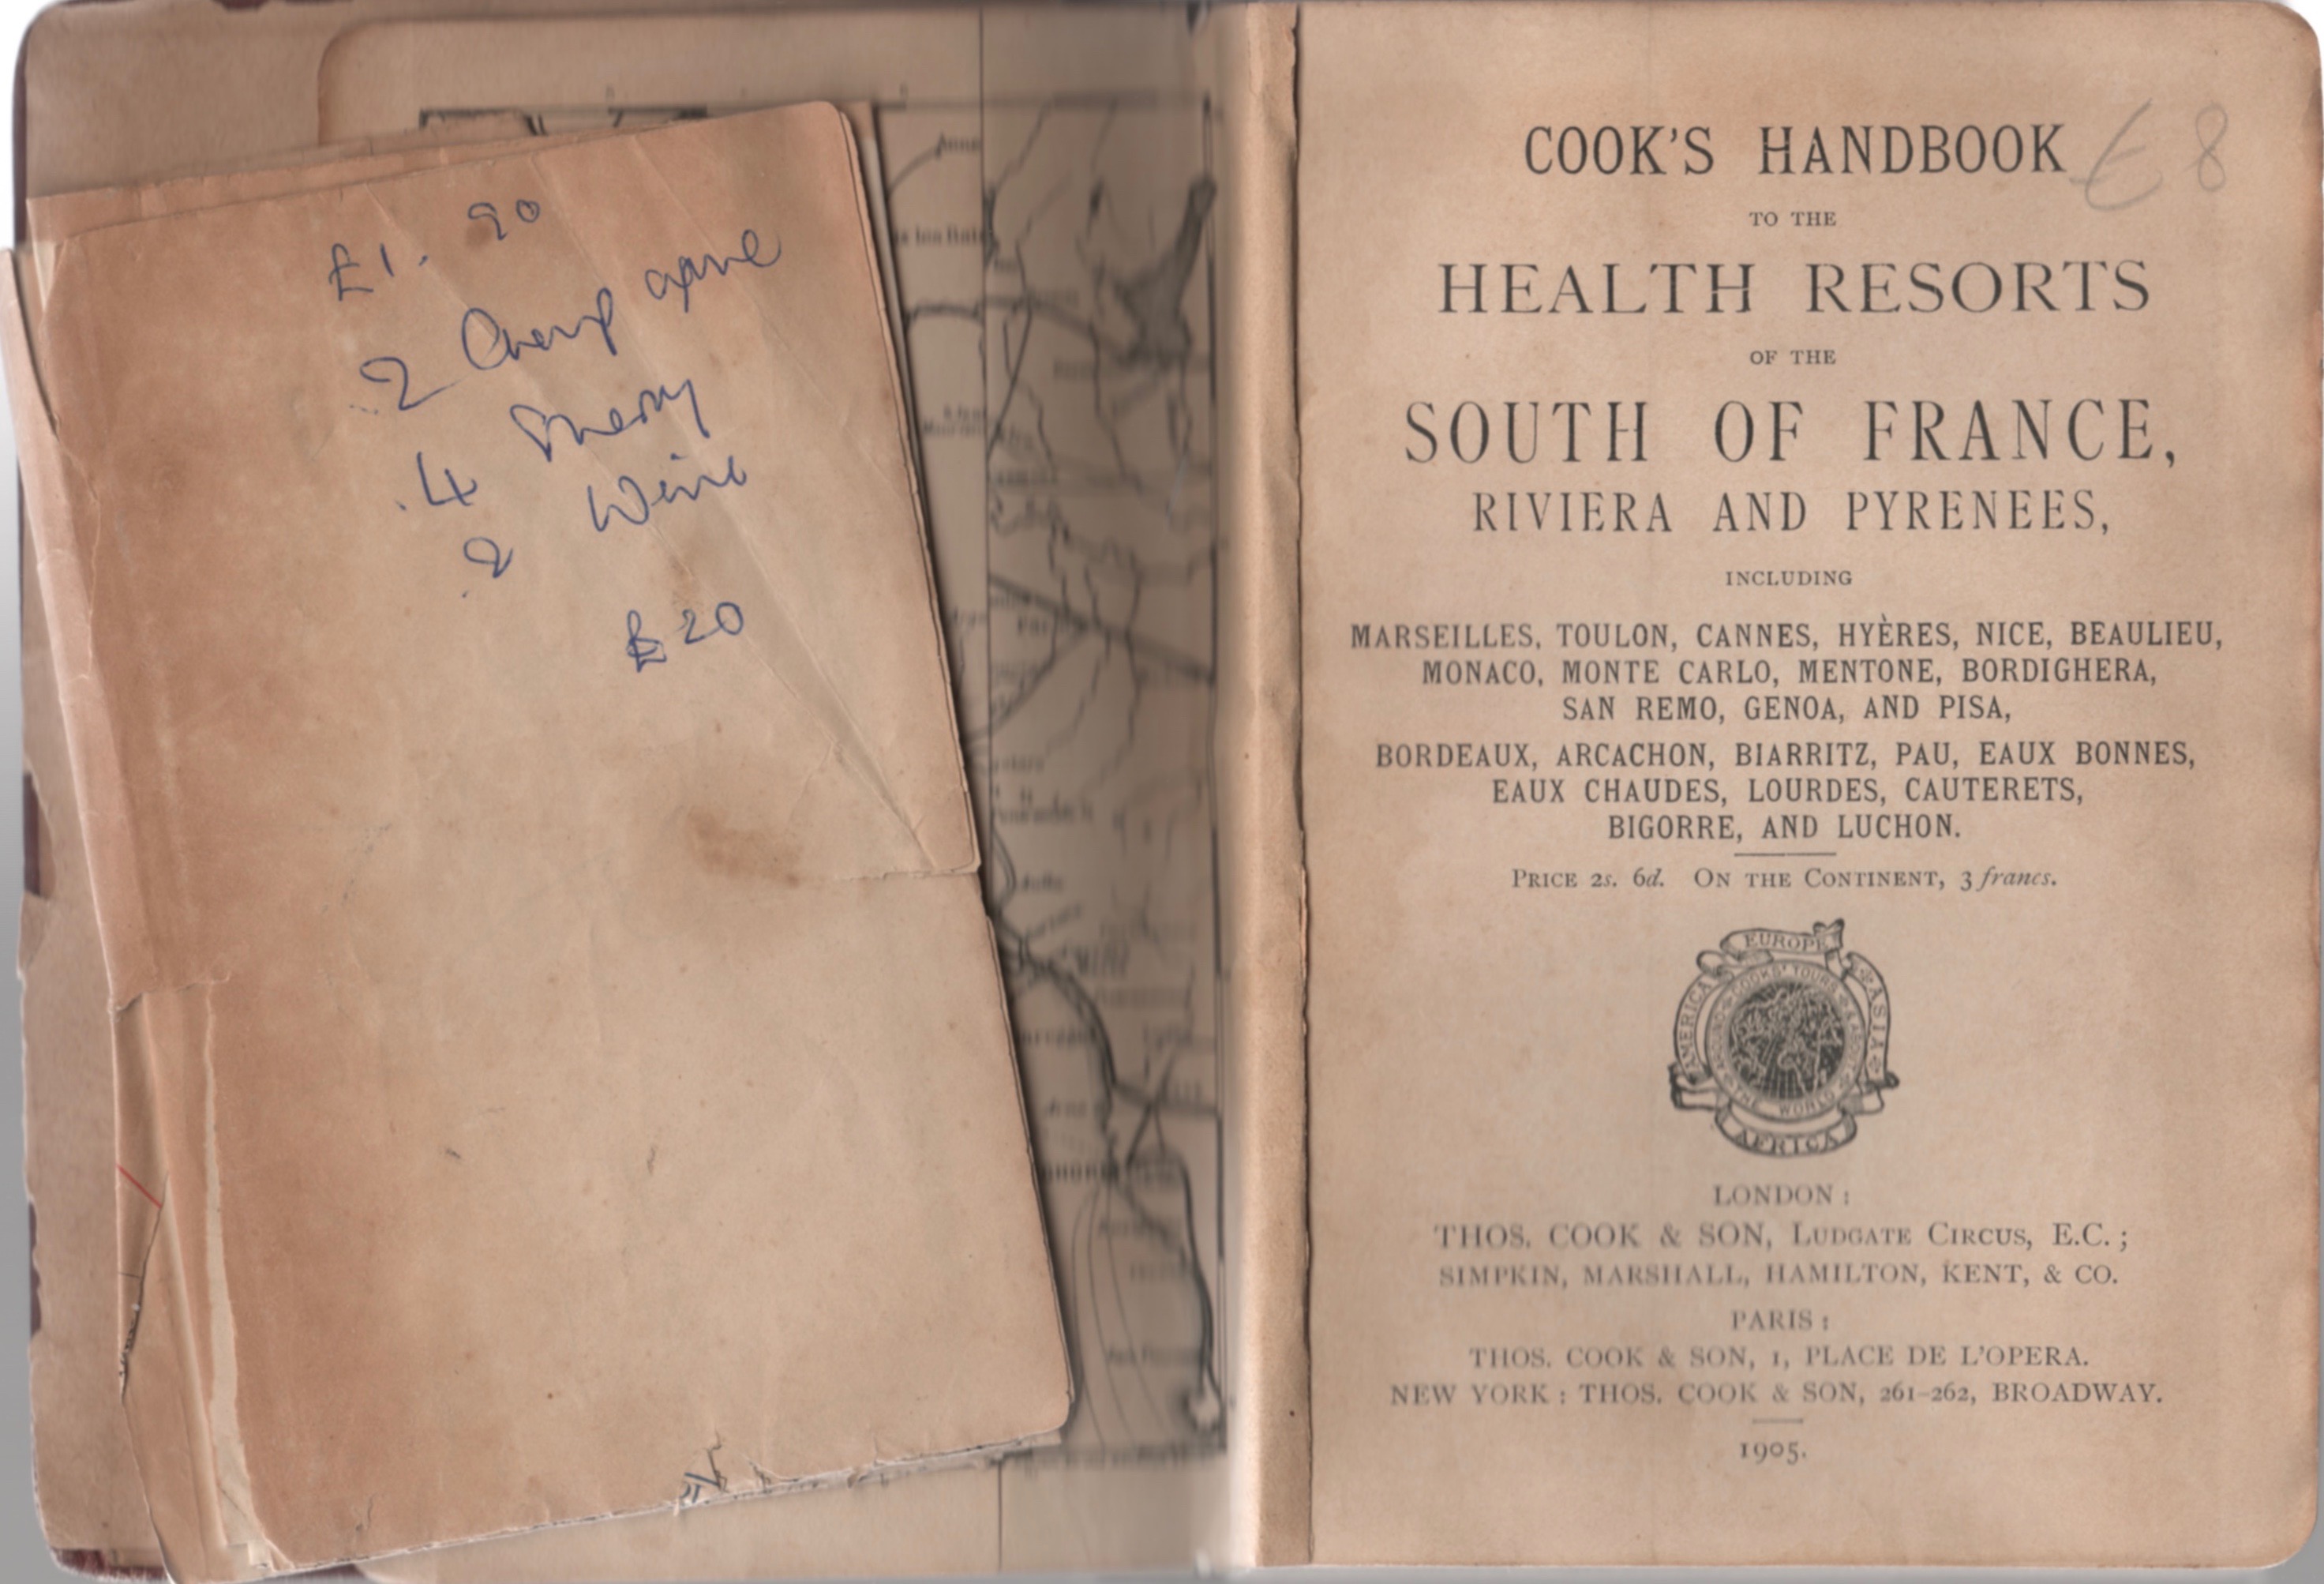 £1.90
2 Champagne
4 Sherry
2 Wine
£20
COOK'S HANDBOOK £8
TO THE
HEALTH RESORTS
OF THE
SOUTH OF FRANCE,
RIVIERA AND PYRENEES,
INCLUDING
MARSEILLES, TOULON, CANNES, HYÈRES, NICE, BEAULIEU,
MONACO, MONTE CARLO, MENTONE, BORDIGHERA,
SAN REMO, GENOA, AND PISA,
BORDEAUX, ARCACHON, BIARRITZ, PAU, EAUX BONNES,
EAUX CHAUDES, LOURDES, CAUTERETS,
BIGORRE, AND LUCHON.
PRICE 2s. 6d. ON THE CONTINENT, 3 francs.
EUROPE
AMERICA
ASIA
COOKS' TOURS
THE WORLD
AFRICA
LONDON:
THOS. COOK & SON, LUDGATE CIRCUS, E.C.;
SIMPKIN, MARSHALL, HAMILTON, KENT, & CO.
PARIS:
THOS. COOK & SON, 1, PLACE DE L'OPERA.
NEW YORK: THOS. COOK & SON, 261-262, BROADWAY.
1905.